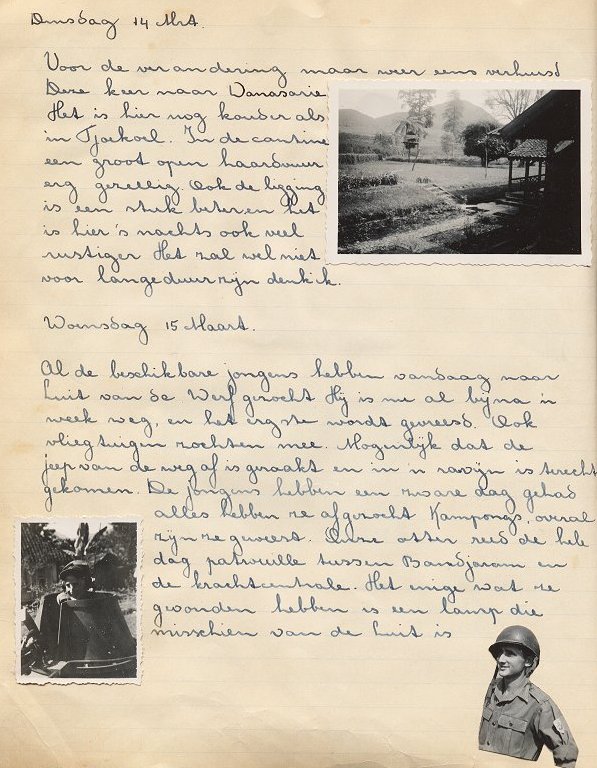 Dinsdag 14 Mrt.
Voor de verandering maar weer eens verhuisd
Deze keer naar Wanasarie
Het is hier nog kouder als
in Tjoekoel. In de cantine
een groot open haardvuur
erg gezellig. Ook de ligging
is een stuk beter en het
is hier 's nachts ook veel
rustiger Het zal wel niet
voor lange duur zijn denk ik.
Woensdag 15 Maart.
Al de beschikbare jongens hebben vandaag naar
Luit van de Werf gezocht Hij is nu al bijna 'n
week weg, en het ergste wordt gevreesd. Ook
vliegtuigen zochten mee. Mogenlijk dat de
jeep van de weg af is geraakt en in 'n ravijn is terecht
gekomen. De jongens hebben een zware dag gehad
alles hebben ze afgezocht Kampongs, overal
zijn ze geweest. Onze otter reed de hele
dag patrouille tussen Bandjaran en
de krachtcentrale. Het enige wat ze
gevonden hebben is een lamp die
misschien van de Luit is